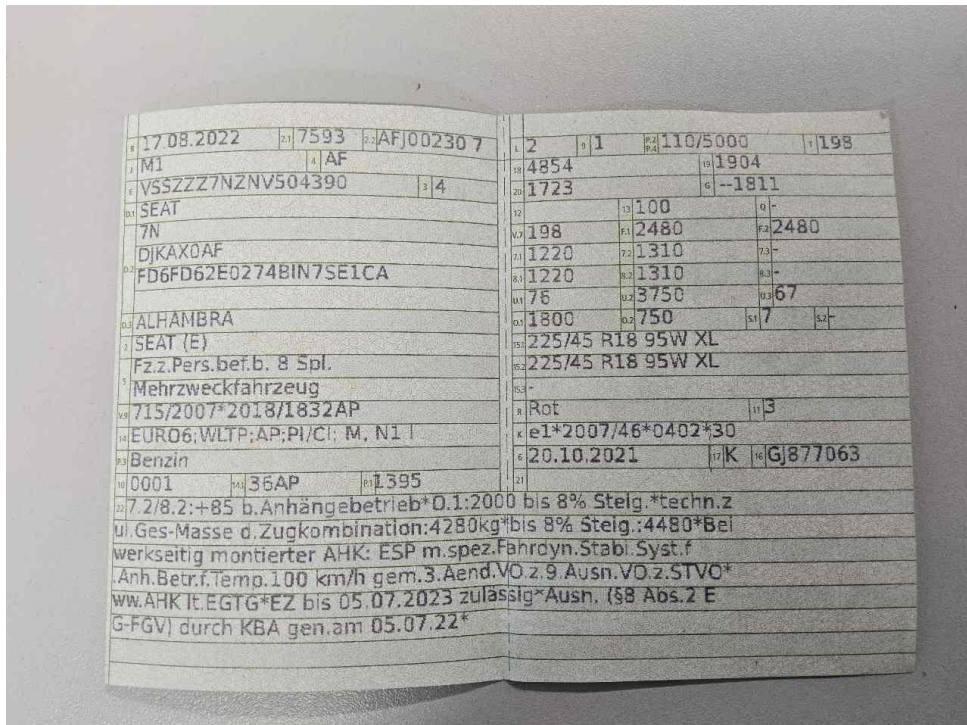 B 17.08.2022 2.1 7593 2.2 AFJ00230 7
J M1 4 AF
E VSSZZZ7NZNV504390 3 4
D.1 SEAT
7N
D.2 DJKAX0AF
FD6FD62E0274BIN7SE1CA
D.3 ALHAMBRA
2 SEAT (E)
5 Fz.z.Pers.bef.b. 8 Spl.
Mehrzweckfahrzeug
V.9 715/2007*2018/1832AP
14 EURO6;WLTP;AP;PI/CI; M, N1 I
P.3 Benzin
10 0001 14.1 36AP P.1 1395
L 2 9 1 P.2 P.4 110/5000 T 198
18 4854 19 1904
20 1723 G --1811
12 13 100 Q -
V.7 198 F.1 2480 F.2 2480
7.1 1220 7.2 1310 7.3 -
8.1 1220 8.2 1310 8.3 -
U.1 76 U.2 3750 U.3 67
O.1 1800 O.2 750 S.1 7 S.2 -
15.1 225/45 R18 95W XL
15.2 225/45 R18 95W XL
15.3 -
R Rot 11 3
K e1*2007/46*0402*30
6 20.10.2021 17 K 16 GJ877063
21
22 7.2/8.2:+85 b.Anhängebetrieb*O.1:2000 bis 8% Steig.*techn.z
ul.Ges-Masse d.Zugkombination:4280kg*bis 8% Steig.:4480*Bei
werkseitig montierter AHK: ESP m.spez.Fahrdyn.Stabi.Syst.f
.Anh.Betr.f.Temp.100 km/h gem.3.Aend.VO.z.9.Ausn.VO.z.STVO*
ww.AHK lt.EGTG*EZ bis 05.07.2023 zulässig*Ausn. (§8 Abs.2 E
G-FGV) durch KBA gen.am 05.07.22*